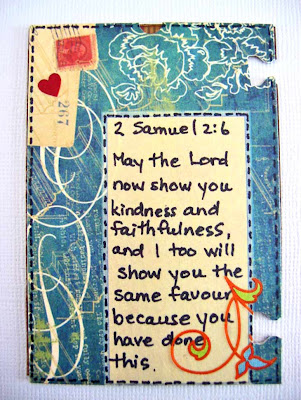 267
2 Samuel 2:6
May the Lord
now show you
kindness and
faithfulness,
and I too will
show you the
same favour
because you
have done
this.